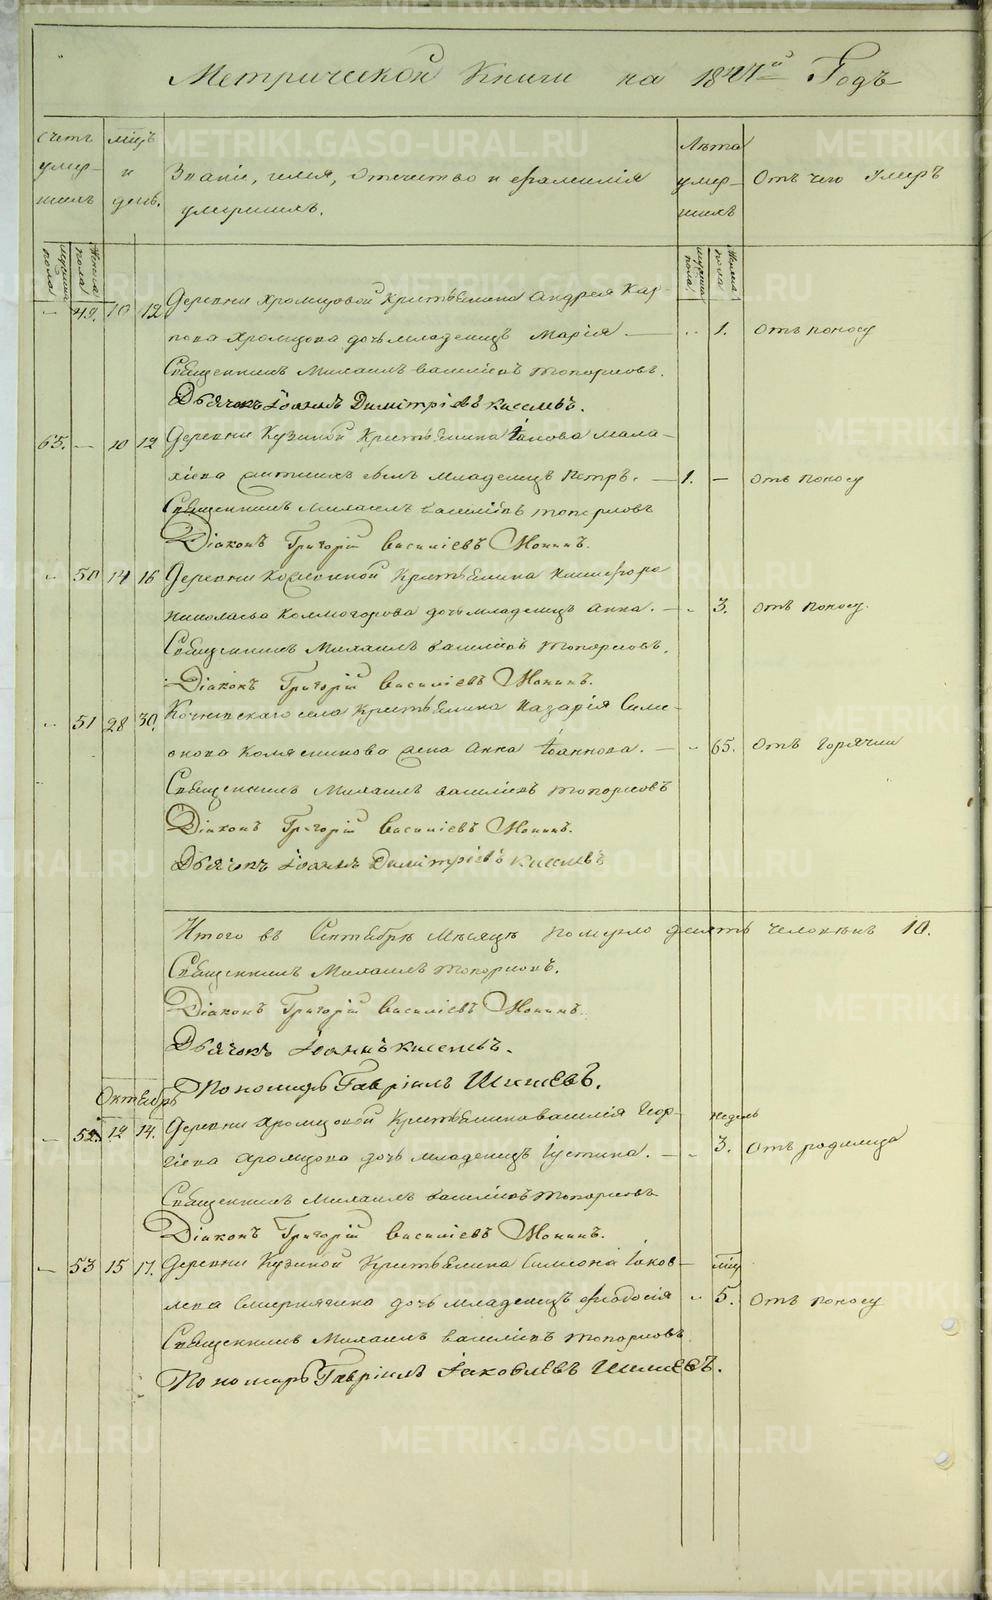 Метрической Книги на 1844й Годъ
Счетъ умер- шихъ
мцъ и день.
Званіе, имя, отечество и фамилія умершихъ.
Лѣта умер- шихъ
Отъ чего умеръ
мужска пола
Женска пола
мужска пола
Женска пола
– 49. 10 12 Деревни Хромцовой Крестьянина Андрея Кар-
пова Хромцова дочь младенецъ Марія. – 1. Отъ поносу
Священникъ Михаилъ Васильевъ Топорковъ.
Дьячокъ Іоаннъ Димитріевъ Киселевъ.
65. – 10 12 Деревни Кузиной Крестьянина Іакова Мала-
хіева сынъ младенецъ Петръ. 1. – Отъ поносу
Священникъ Михаилъ Васильевъ Топорковъ
Діаконъ Григорій Василіевъ Нонинъ.
– 50 14 16 Деревни Крестьянина Никифора
Николаева Колмогорова дочь младенецъ Анна. – 3. Отъ поносу.
Священникъ Михаилъ Васильевъ Топорковъ.
Діаконъ Григорій Василіевъ Нонинъ.
– 51 28 30. села Крестьянина Назарія Симе-
онова жена Анна Іоаннова. – 65. Отъ горячки
Священникъ Михаилъ Васильевъ Топорковъ
Діаконъ Григорій Василіевъ Нонинъ.
Дьячокъ Іоаннъ Димитріевъ Киселевъ
Итого въ Сентябрѣ мѣсяцѣ померло десять человѣкъ 10.
Священникъ Михаилъ Топорковъ.
Діаконъ Григорій Василіевъ Нонинъ.
Дьячокъ Іоаннъ Киселевъ.
Пономарь Гавріилъ Шишевъ.
Октябрь
– 52. 12 14. Деревни Хромцовой Крестьянина Василія Геор- недель
гіева Хромцова дочь младенецъ Іустина. – 3. Отъ родимца
Священникъ Михаилъ Васильевъ Топорковъ
Діаконъ Григорій Василіевъ Нонинъ.
– 53 15 17. Деревни Кузиной Крестьянина Симеона Іаков- мцъ
лева дочь младенецъ Феодосія 5. Отъ поносу
Священникъ Михаилъ Васильевъ Топорковъ
Пономарь Гавріилъ Іаковлевъ Шишевъ.
METRIKI.GASO-URAL.RU